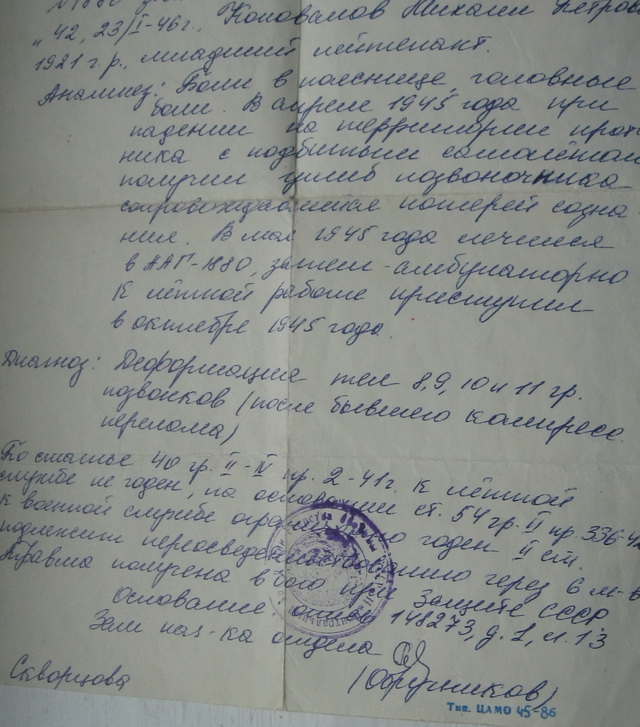 „42, 23/I-46г., Коновалов Михаил Петров
1921 г.р., младший лейтенант.
Анамнез: Боли в пояснице, головные
боли. В апреле 1945 года при
падении на территории прот
ника с подбитым самолётом
получил ушиб позвоночника
сопровождавшийся потерей созна
ния. В мае 1945 года лечился
в ААГ-1880, затем - амбулаторно
К лётной работе приступил
в октябре 1945 года.
Диагноз: Деформация тел 8,9,10 и 11 гр.
позвонков (после бывшего компресс.
перелома)
По статье 40 гр. II-IV пр. 2-41г. к лётной
службе не годен, на основании ст. 54 гр. II пр. 336-42
к военной службе годен II ст.
подлежит переосвидетельствованию через 6 м-в
Травма получена в бою при защите СССР
Основание: 148273, д. 1, л. 13
Зам нач-ка отдела
(Обручников)
Скворцова
Тип. ЦАМО 45-86